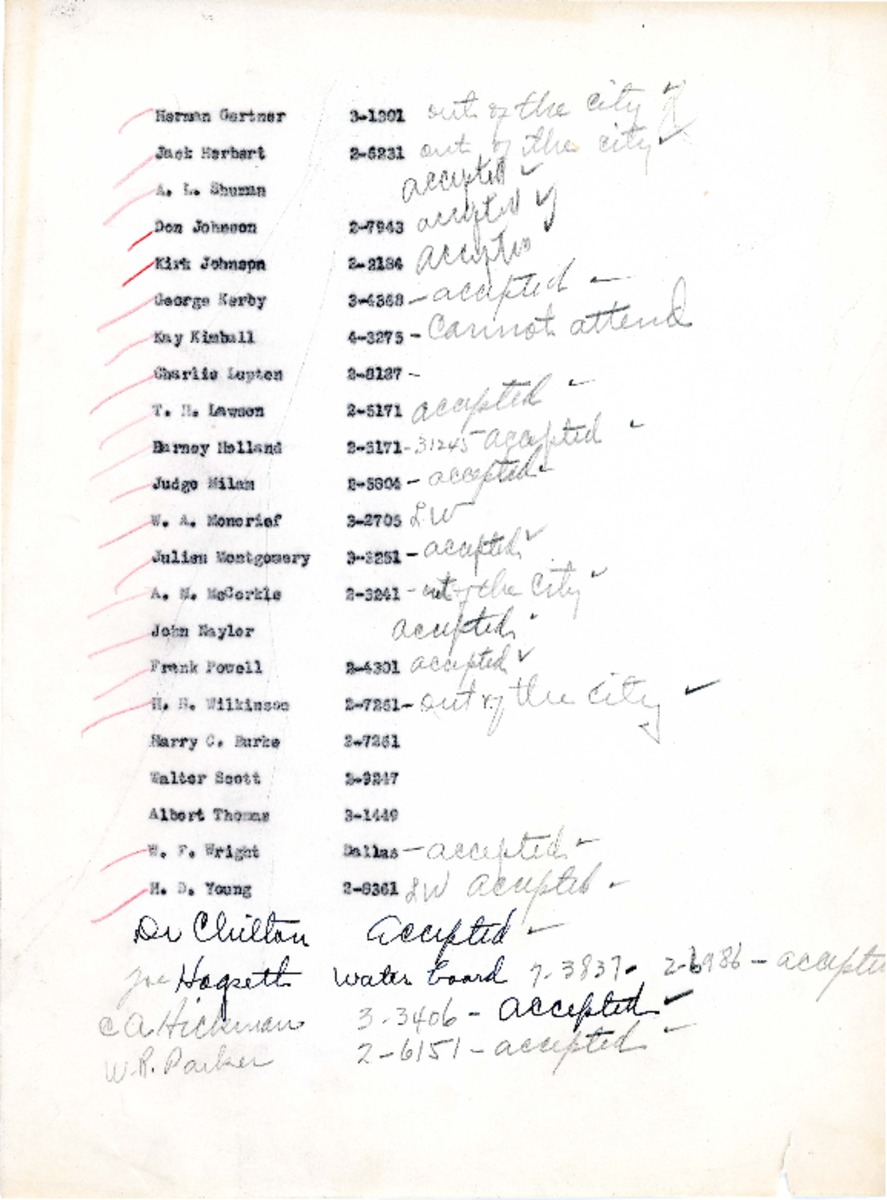 Herman Gartner 3-1301 out of the city ✓
Jack Herbert 2-6231 out of the city ✓
A. L. Shuman accepted ✓
Don Johnson 2-7943 accepted ✓
Kirk Johnson 2-2184 accepted
George Kerby 3-4368 - accepted -
Kay Kimball 4-3275 - Cannot attend
Charlie Lupton 2-8127 -
T. H. Lawson 2-5171 accepted ✓
Barney Holland 2-5171 - 31245 accepted ✓
Judge Milam - accepted ✓
W. A. Moncrief 3-2705 LW
Julian Montgomery 3-3251 - accepted ✓
A. M. McCorkle 2-3241 - out of the city ✓
John Naylor accepted ✓
Frank Powell 2-4301 accepted ✓
H. H. Wilkinson 2-7261 - out of the city ✓
Harry C. Burke 2-7261
Walter Scott 2-9247
Albert Thomas 3-1449
W. F. Wright Dallas - accepted ✓
H. D. Young 2-8361 LW accepted ✓
Dr Chilton Accepted ✓
Joe Hogsett Water board 7-3837 - 2-6986 - accepted
C A Hickman 3-3406 - Accepted ✓
W.R. Parker 2-6151 - accepted ✓